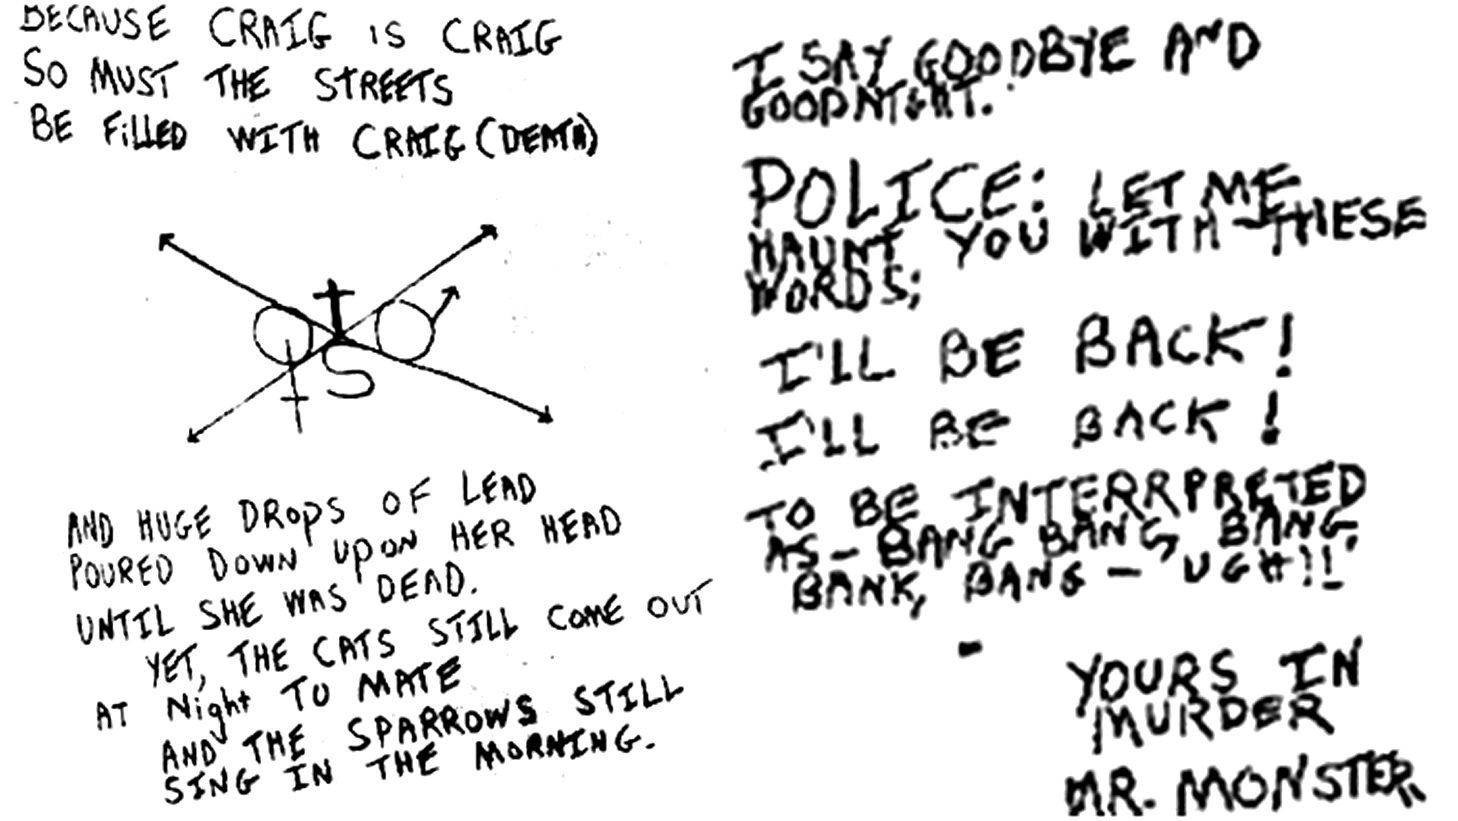 BECAUSE CRAIG IS CRAIG
SO MUST THE STREETS
BE FILLED WITH CRAIG (DEATH)
S
AND HUGE DROPS OF LEAD
POURED DOWN UPON HER HEAD
UNTIL SHE WAS DEAD.
YET, THE CATS STILL COME OUT
AT Night TO MATE
AND THE SPARROWS STILL
SING IN THE MORNING.
I SAY GOODBYE AND
GOODNIGHT.
POLICE: LET ME
HAUNT YOU WITH THESE
WORDS;
I'LL BE BACK!
I'LL BE BACK!
TO BE INTERRPRETED
AS - BANG BANG, BANG,
BANK, BANG - UGH!!
YOURS IN
MURDER
MR. MONSTER